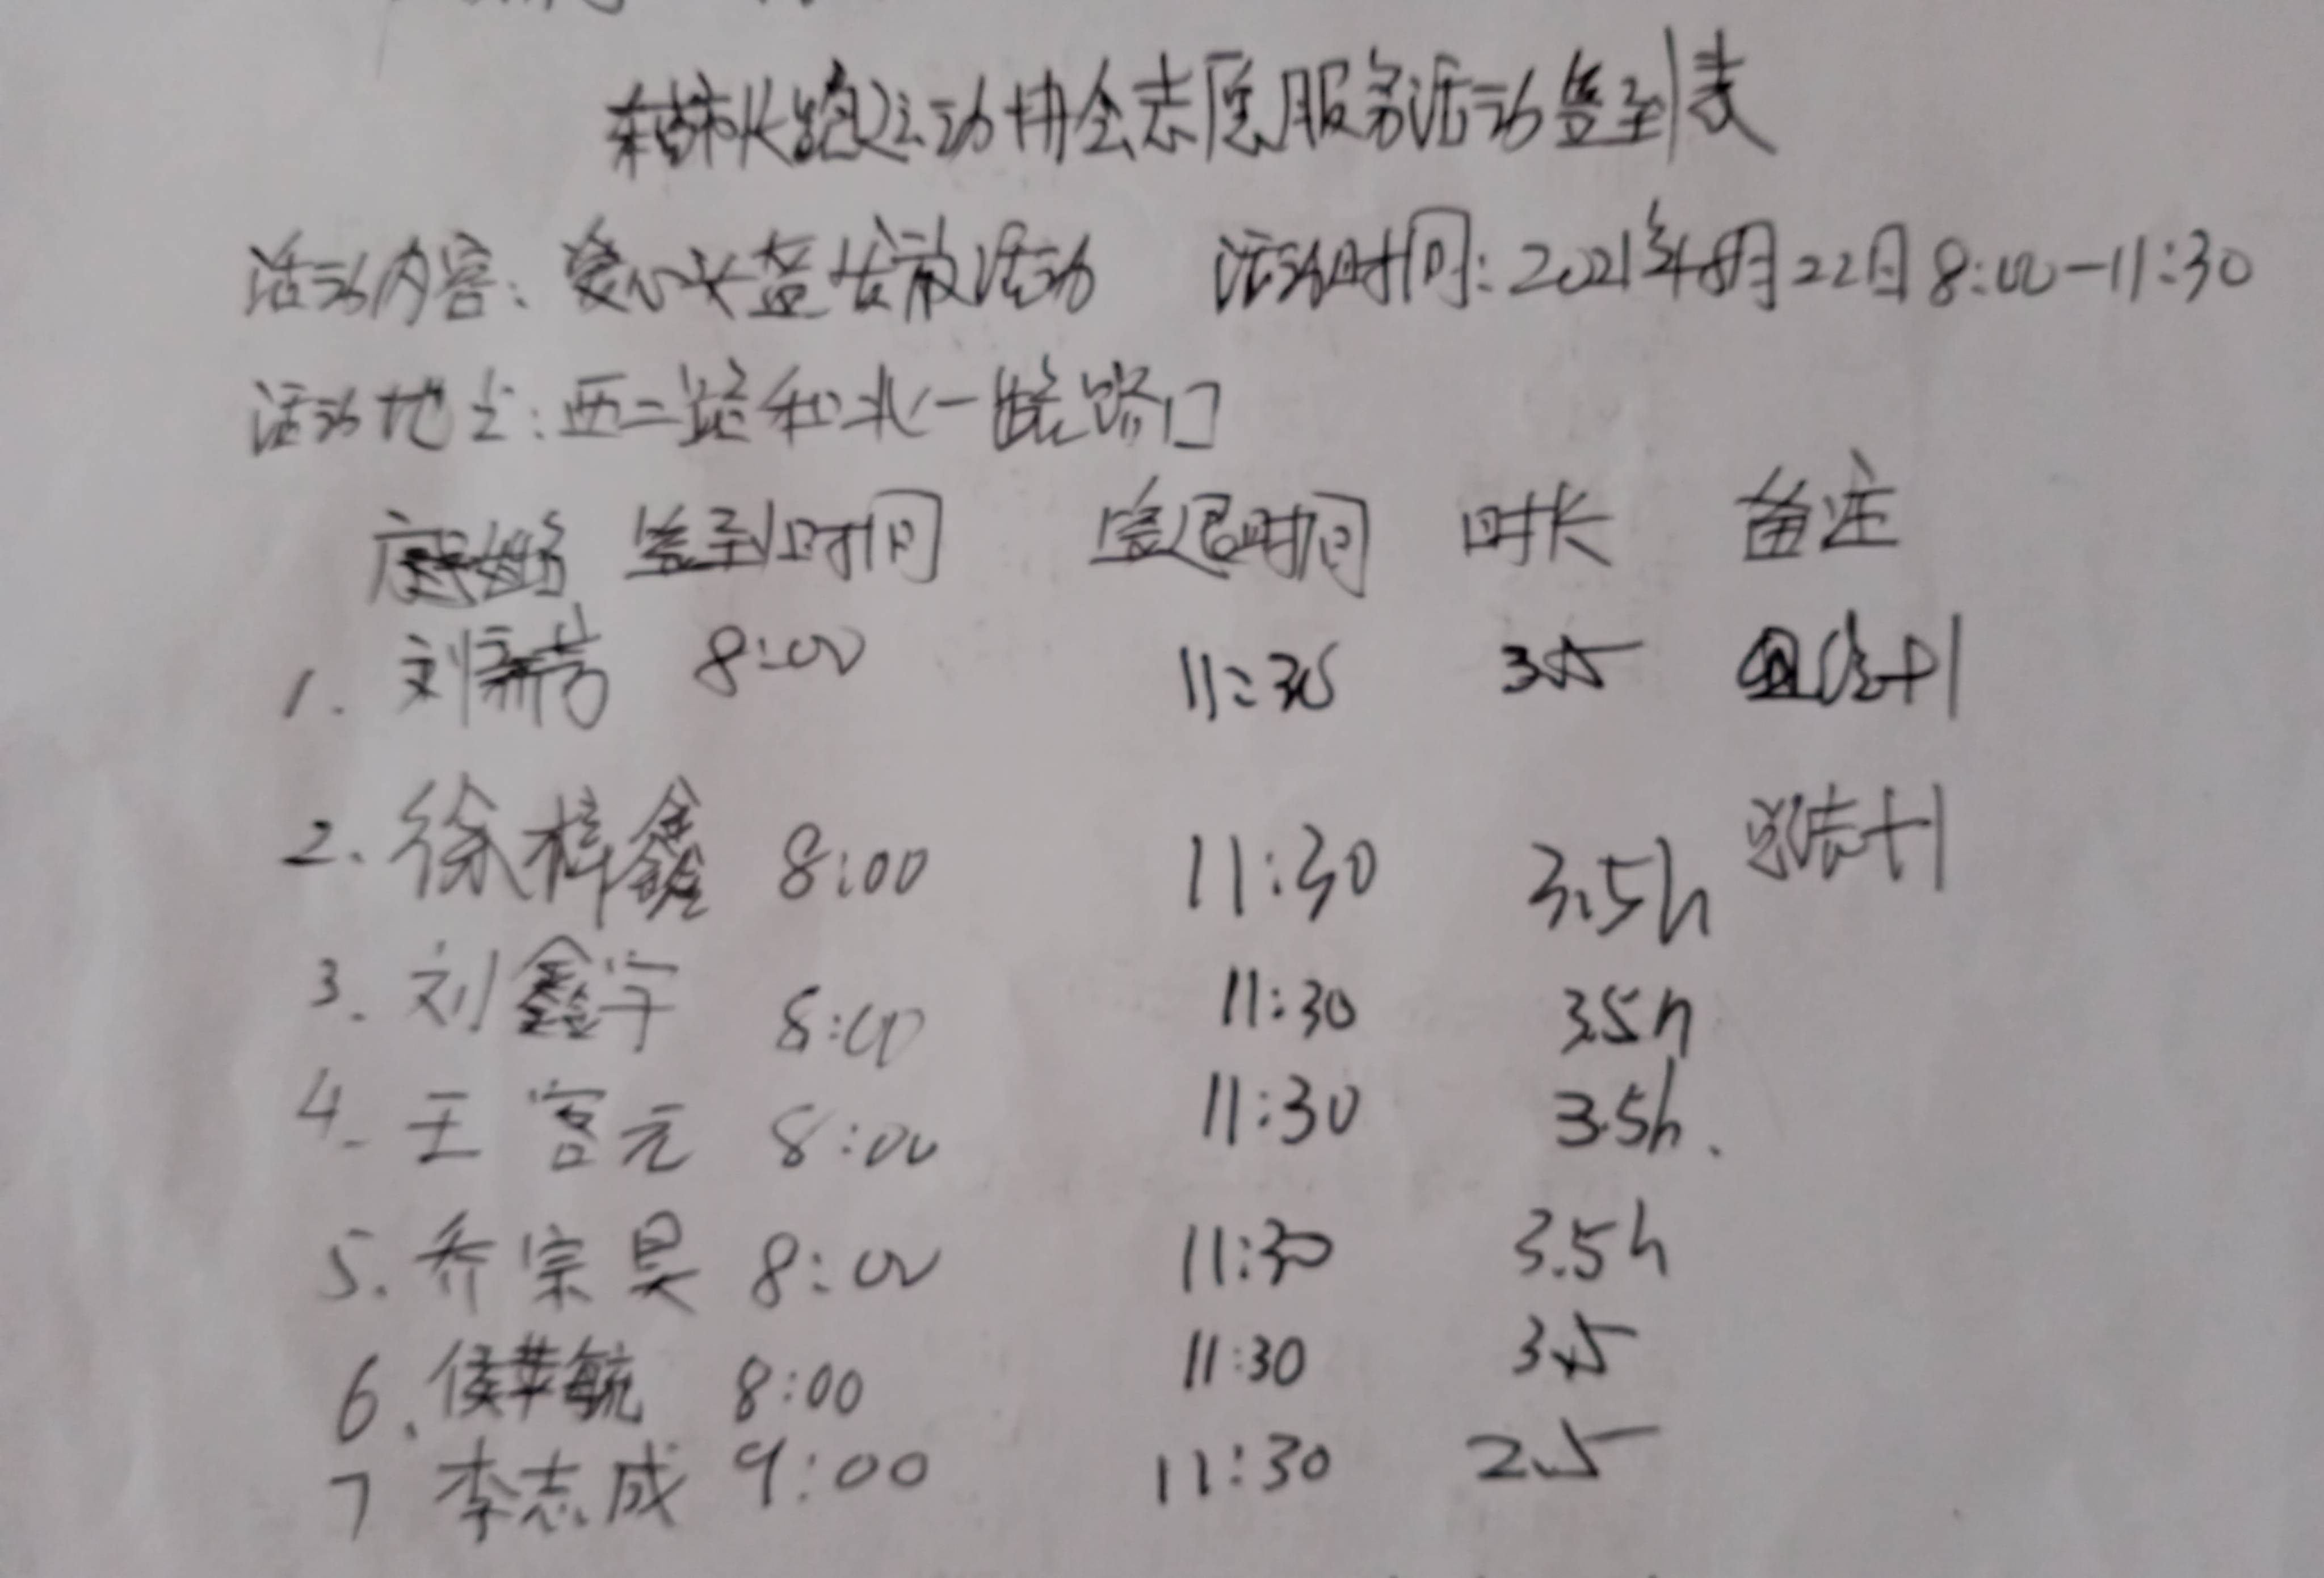 东营市长跑运动协会志愿服务活动签到表
活动内容：爱心头盔发放活动 活动时间：2021年8月22日8:00-11:30
活动地点：西二路和北一路路口
序号 姓名 签到时间 签退时间 时长 备注
1. 刘新芳 8:00 11:30 3.5 +1
2. 徐梓鑫 8:00 11:30 3.5h +1
3. 刘鑫宇 8:00 11:30 3.5h
4. 王客元 8:00 11:30 3.5h.
5. 乔宗昊 8:00 11:30 3.5h
6. 侯苹毓 8:00 11:30 3.5
7 李志成 9:00 11:30 2.5